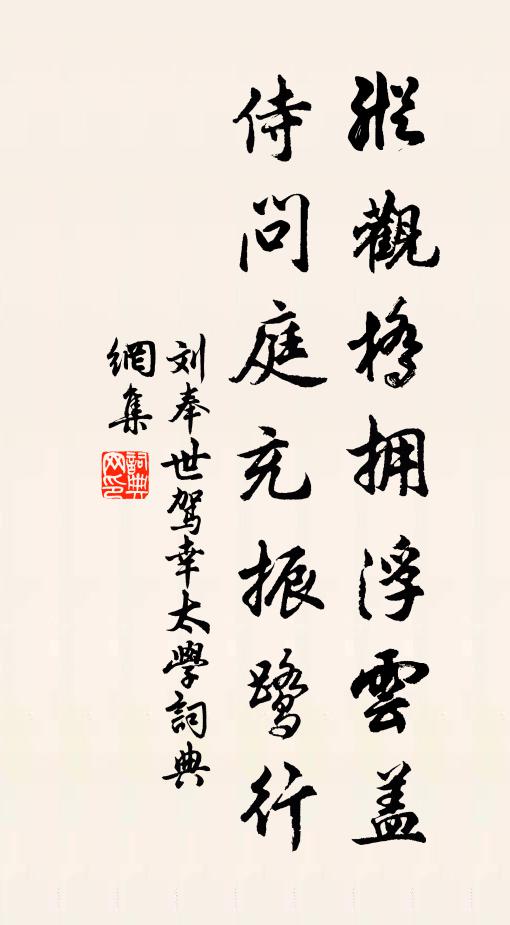 縱觀橋擁浮雲蓋
侍問庭充振鷺行
刘奉世駕幸太學詞典
網集
詞典
网印